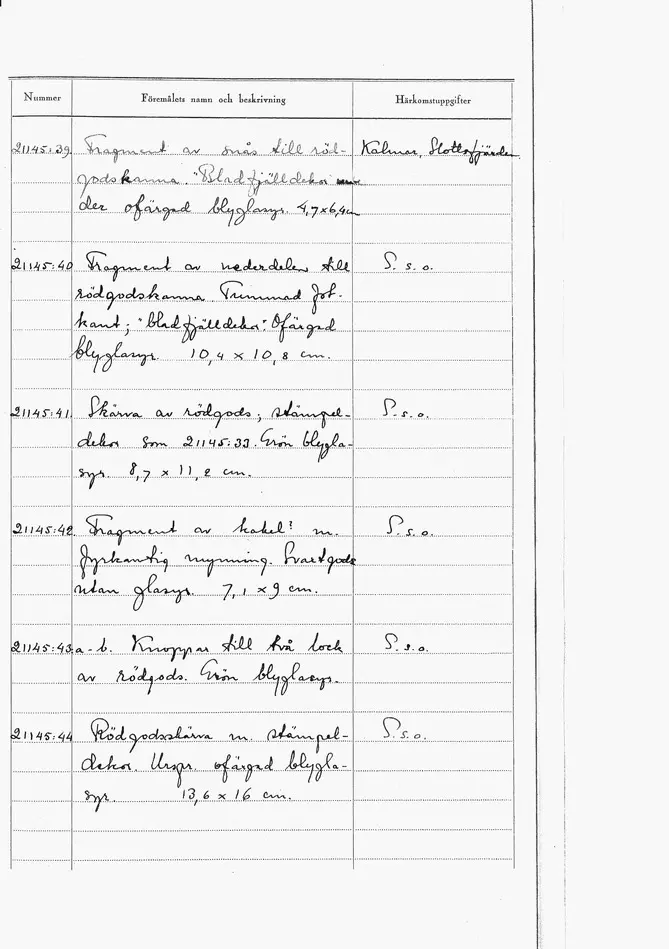 Nummer Föremålets namn och beskrivning Härkomstuppgifter
21145:39. Fragment av snås till röd- Kalmar, Slottsfjärden
godskanna. "Bladfjälldekor un-
der ofärgad blyglasyr. 4,7x6,4cm
21145:40 Fragment av nederdelen till P. s. o.
rödgodskanna. Tummad fot-
kant; "bladfjälldekor". Ofärgad
blyglasyr. 10,4 x 10,8 cm.
21145:41. Skärva av rödgods; stämpel- P. s. o.
dekor som 21145:33. Grön blygla-
syr. 8,7 x 11,2 cm.
21145:42. Fragment av kakel? m. P. s. o.
fyrkantig mynning. Svartgods
utan glasyr. 7,1 x 9 cm.
21145:43. a-b. Knoppar till två lock P. s. o.
av rödgods. Grön blyglasyr.
21145:44 Rödgodsskärva m. stämpel- P. s. o.
dekor. Urspr. ofärgad blygla-
syr. 13,6 x 16 cm.